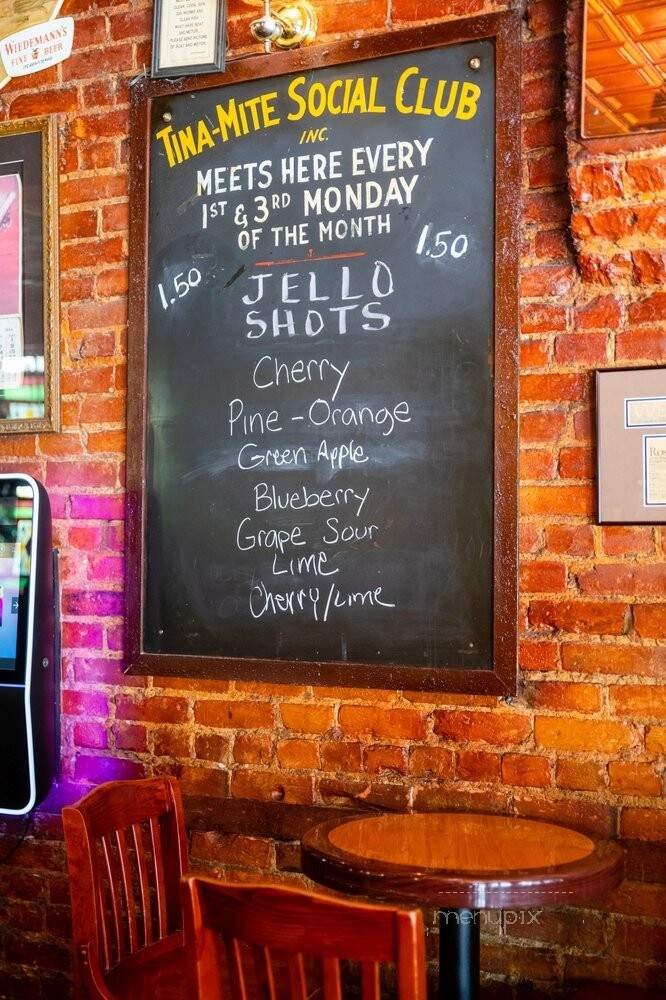 WIEDEMANN'S
FINE BEER
TINA-MITE SOCIAL CLUB
INC.
MEETS HERE EVERY
1ST & 3RD MONDAY
OF THE MONTH
1.50
1.50
JELLO
SHOTS
Cherry
Pine-Orange
Green Apple
Blueberry
Grape Sour
Lime
Cherry/Lime
menupix